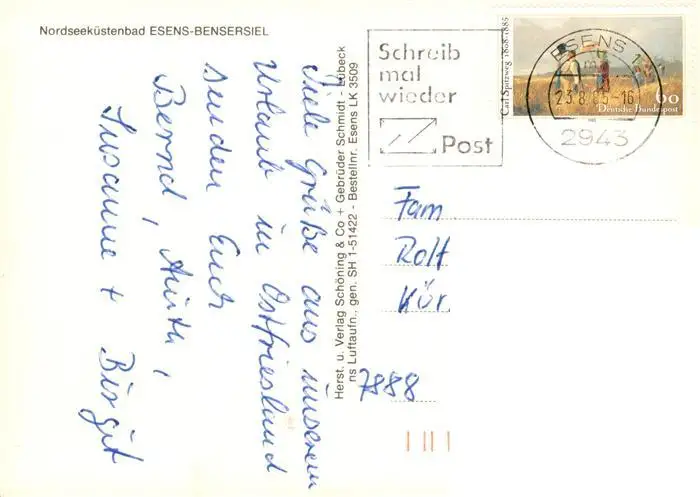 Nordseeküstenbad ESENS-BENSERSIEL
Viele Grüße aus unserem
Urlaub in Ostfriesland
senden Euch
Bernd,
Susanne + Birgit
Herst. u. Verlag Schöning & Co + Gebrüder Schmidt - Lübeck
ns Luftaufn., gen. SH 1-51422 - Bestellnr. Esens LK 3509
Schreib
mal
wieder
Post
Carl Spitzweg 1808-1885
60
Deutsche Bundespost
ESENS 1
23.8.85-16
2943
Fam
Rolf
Kör.
7888